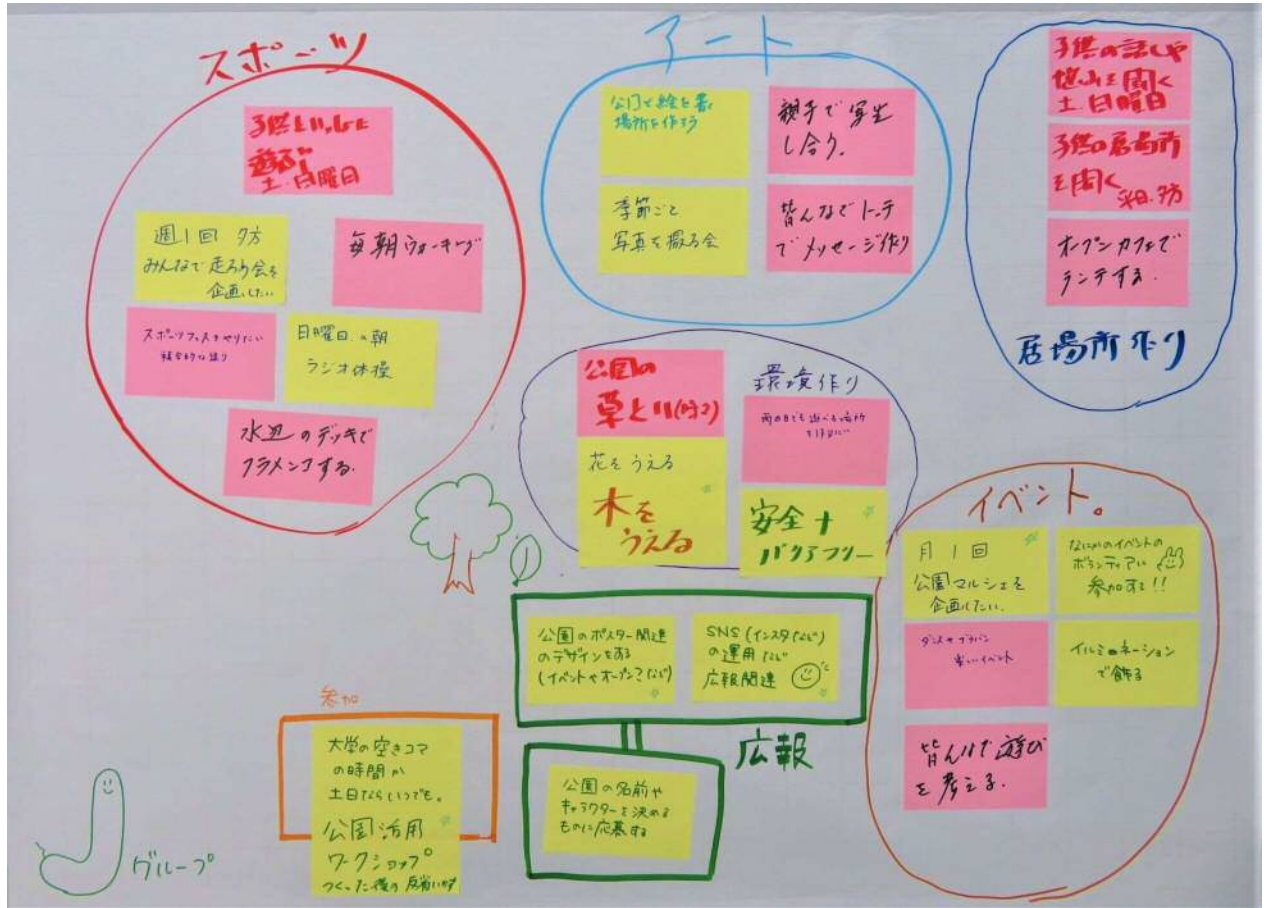 スポーツ
子供といっしょに
遊ぶ
土.日曜日
週1回 夕方
みんなで走ろう会を
企画したい
毎朝ウォーキング
スポーツフェスをやりたい
日曜日の朝
ラジオ体操
水辺のデッキで
フラメンコする.
アート
公園で絵を書く
場所を作ろう
親子で写生
し合う.
季節ごと
写真を撮る会
皆んなで
でメッセージ作り
子供の話しや
悩みを聞く
土.日曜日
子供の居場所
を開く
平日.夕方
オープンカフェで
ランチする.
居場所作り
公園の
草とり(時々)
環境作り
雨の日でも遊べる場所
花をうえる
木を
うえる
安全+
バリアフリー
イベント。
月1回
公園マルシェを
企画したい.
なにかのイベントの
ボランティアに
参加する!!
ダンスやブラバン
楽しいイベント
イルミネーション
で飾る
皆んなで遊び
を考える.
公園のポスター関連
のデザインをする
(イベントやオープン?など)
SNS(インスタなど)
の運用など
広報関連
広報
公園の名前や
キャラクターを決める
ものに応募する
参加
大学の空きコマ
の時間か
土日ならいつでも。
公園活用
ワークショップ
つくった後の反省いかす
Jグループ